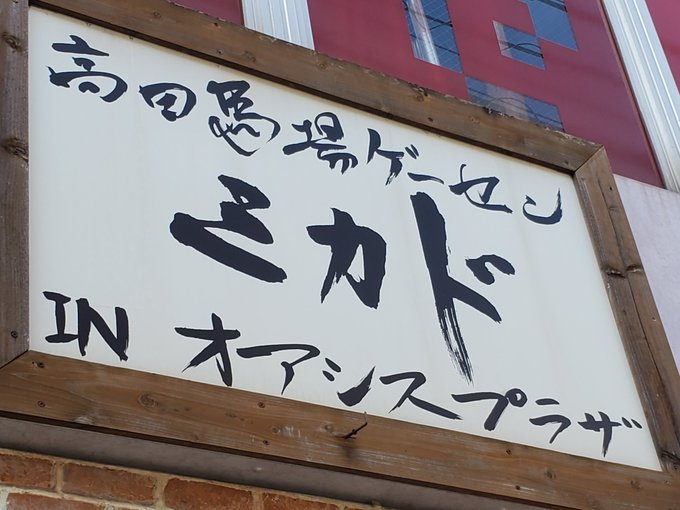 高田馬場ゲーセン
ミカド
IN オアシスプラザ